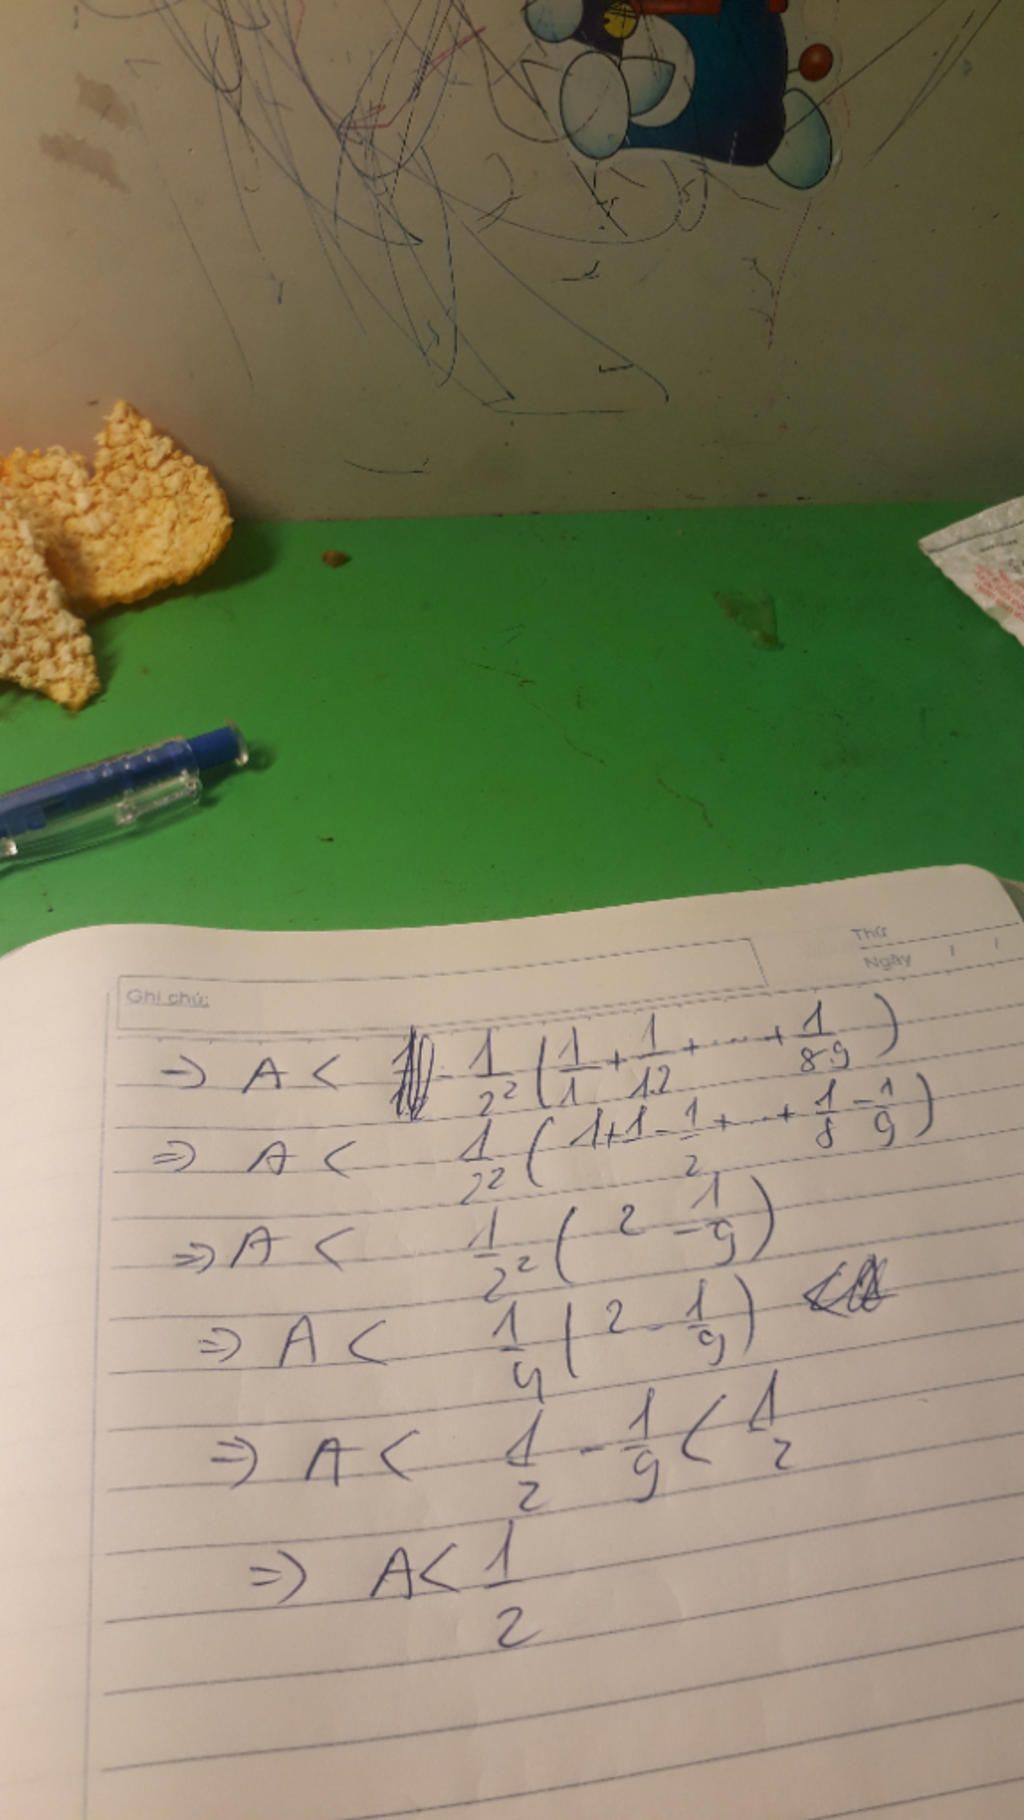 Thứ
Ngày / /
Ghi chú:
→ A < 1/2² (1/1 + 1/1.2 + ... + 1/8.9)
⇒ A < 1/2² (1+1-1/2+...+1/8-1/9)
⇒ A < 1/2² (2 - 1/9)
⇒ A < 1/4 (2 - 1/9)
⇒ A < 1/2 - 1/9 < 1/2
⇒ A < 1/2